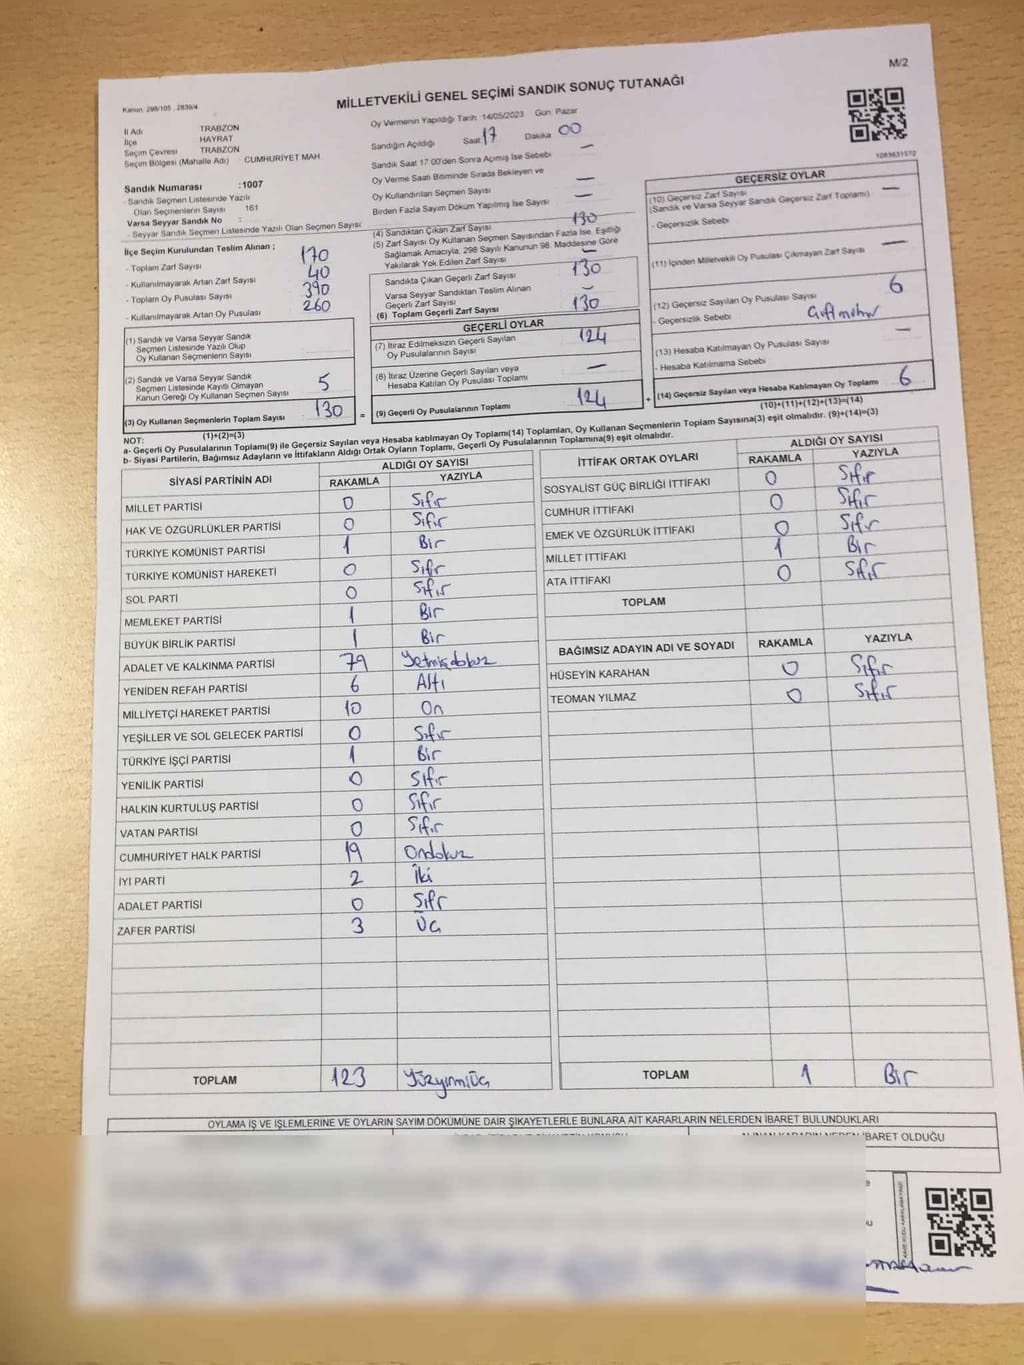 M/2
Kanun: 298/105 , 2839/4
MİLLETVEKİLİ GENEL SEÇİMİ SANDIK SONUÇ TUTANAĞI
İl Adı TRABZON
İlçe HAYRAT
Seçim Çevresi TRABZON
Seçim Bölgesi (Mahalle Adı) CUMHURİYET MAH
Sandık Numarası :1007
- Sandık Seçmen Listesinde Yazılı
Olan Seçmenlerin Sayısı 161
Varsa Seyyar Sandık No :
- Seyyar Sandık Seçmen Listesinde Yazılı Olan Seçmen Sayısı
İlçe Seçim Kurulundan Teslim Alınan ;
- Toplam Zarf Sayısı 170
- Kullanılmayarak Artan Zarf Sayısı 40
- Toplam Oy Pusulası Sayısı 390
- Kullanılmayarak Artan Oy Pusulası 260
(1) Sandık ve Varsa Seyyar Sandık
Seçmen Listesinde Yazılı Olup
Oy Kullanan Seçmenlerin Sayısı
(2) Sandık ve Varsa Seyyar Sandık
Seçmen Listesinde Kayıtlı Olmayan
Kanun Gereği Oy Kullanan Seçmen Sayısı 5
(3) Oy Kullanan Seçmenlerin Toplam Sayısı 130
(1)+(2)=(3)
Oy Vermenin Yapıldığı Tarih 14/05/2023 Gün: Pazar
Sandığın Açıldığı Saat 17 Dakika 00
Sandık Saat 17:00'den Sonra Açımış İse Sebebi —
Oy Verme Saati Bitiminde Sırada Bekleyen ve
Oy Kullandırılan Seçmen Sayısı —
Birden Fazla Sayım Döküm Yapılmış İse Sayısı —
(4) Sandıktan Çıkan Zarf Sayısı 130
(5) Zarf Sayısı Oy Kullanan Seçmen Sayısından Fazla İse, Eşitliği
Sağlamak Amacıyla, 298 Sayılı Kanunun 98. Maddesine Göre
Yakılarak Yok Edilen Zarf Sayısı —
Sandıkta Çıkan Geçerli Zarf Sayısı 130
Varsa Seyyar Sandıktan Teslim Alınan
Geçerli Zarf Sayısı —
(6) Toplam Geçerli Zarf Sayısı 130
GEÇERLİ OYLAR
(7) İtiraz Edilmeksizin Geçerli Sayılan
Oy Pusulalarının Sayısı 124
(8) İtiraz Üzerine Geçerli Sayılan veya
Hesaba Katılan Oy Pusulası Toplamı —
= (9) Geçerli Oy Pusulalarının Toplamı 124 +
1083631572
GEÇERSİZ OYLAR
(10) Geçersiz Zarf Sayısı —
(Sandık ve Varsa Seyyar Sandık Geçersiz Zarf Toplamı)
- Geçersizlik Sebebi
(11) İçinden Milletvekili Oy Pusulası Çıkmayan Zarf Sayısı —
(12) Geçersiz Sayılan Oy Pusulası Sayısı 6
- Geçersizlik Sebebi Çift mühür
(13) Hesaba Katılmayan Oy Pusulası Sayısı —
- Hesaba Katılmama Sebebi
(14) Geçersiz Sayılan veya Hesaba Katılmayan Oy Toplamı 6
(10)+(11)+(12)+(13)=(14)
NOT:
a- Geçerli Oy Pusulalarının Toplamı(9) ile Geçersiz Sayılan veya Hesaba katılmayan Oy Toplamı(14) Toplamları, Oy Kullanan Seçmenlerin Toplam Sayısına(3) eşit olmalıdır. (9)+(14)=(3)
b- Siyasi Partilerin, Bağımsız Adayların ve İttifakların Aldığı Ortak Oyların Toplamı, Geçerli Oy Pusulalarının Toplamına(9) eşit olmalıdır.
SİYASİ PARTİNİN ADI ALDIĞI OY SAYISI
RAKAMLA YAZIYLA
MİLLET PARTİSİ 0 Sıfır
HAK VE ÖZGÜRLÜKLER PARTİSİ 0 Sıfır
TÜRKİYE KOMÜNİST PARTİSİ 1 Bir
TÜRKİYE KOMÜNİST HAREKETİ 0 Sıfır
SOL PARTİ 0 Sıfır
MEMLEKET PARTİSİ 1 Bir
BÜYÜK BİRLİK PARTİSİ 1 Bir
ADALET VE KALKINMA PARTİSİ 79 Yetmişdokuz
YENİDEN REFAH PARTİSİ 6 Altı
MİLLİYETÇİ HAREKET PARTİSİ 10 On
YEŞİLLER VE SOL GELECEK PARTİSİ 0 Sıfır
TÜRKİYE İŞÇİ PARTİSİ 1 Bir
YENİLİK PARTİSİ 0 Sıfır
HALKIN KURTULUŞ PARTİSİ 0 Sıfır
VATAN PARTİSİ 0 Sıfır
CUMHURİYET HALK PARTİSİ 19 Ondokuz
İYİ PARTİ 2 İki
ADALET PARTİSİ 0 Sıfır
ZAFER PARTİSİ 3 Üç
TOPLAM 123 Yüzyirmiüç
İTTİFAK ORTAK OYLARI ALDIĞI OY SAYISI
RAKAMLA YAZIYLA
SOSYALİST GÜÇ BİRLİĞİ İTTİFAKI 0 Sıfır
CUMHUR İTTİFAKI 0 Sıfır
EMEK VE ÖZGÜRLÜK İTTİFAKI 0 Sıfır
MİLLET İTTİFAKI 1 Bir
ATA İTTİFAKI 0 Sıfır
TOPLAM
BAĞIMSIZ ADAYIN ADI VE SOYADI RAKAMLA YAZIYLA
HÜSEYİN KARAHAN 0 Sıfır
TEOMAN YILMAZ 0 Sıfır
TOPLAM 1 Bir
OYLAMA İŞ VE İŞLEMLERİNE VE OYLARIN SAYIM DÖKÜMÜNE DAİR ŞİKAYETLERLE BUNLARA AİT KARARLARIN NELERDEN İBARET BULUNDUKLARI
İBARET OLDUĞU